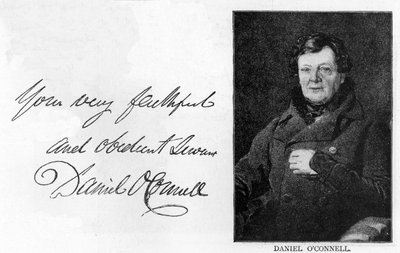 Your very faithful
and obedient Servant
Daniel O'Connell
DANIEL O'CONNELL.